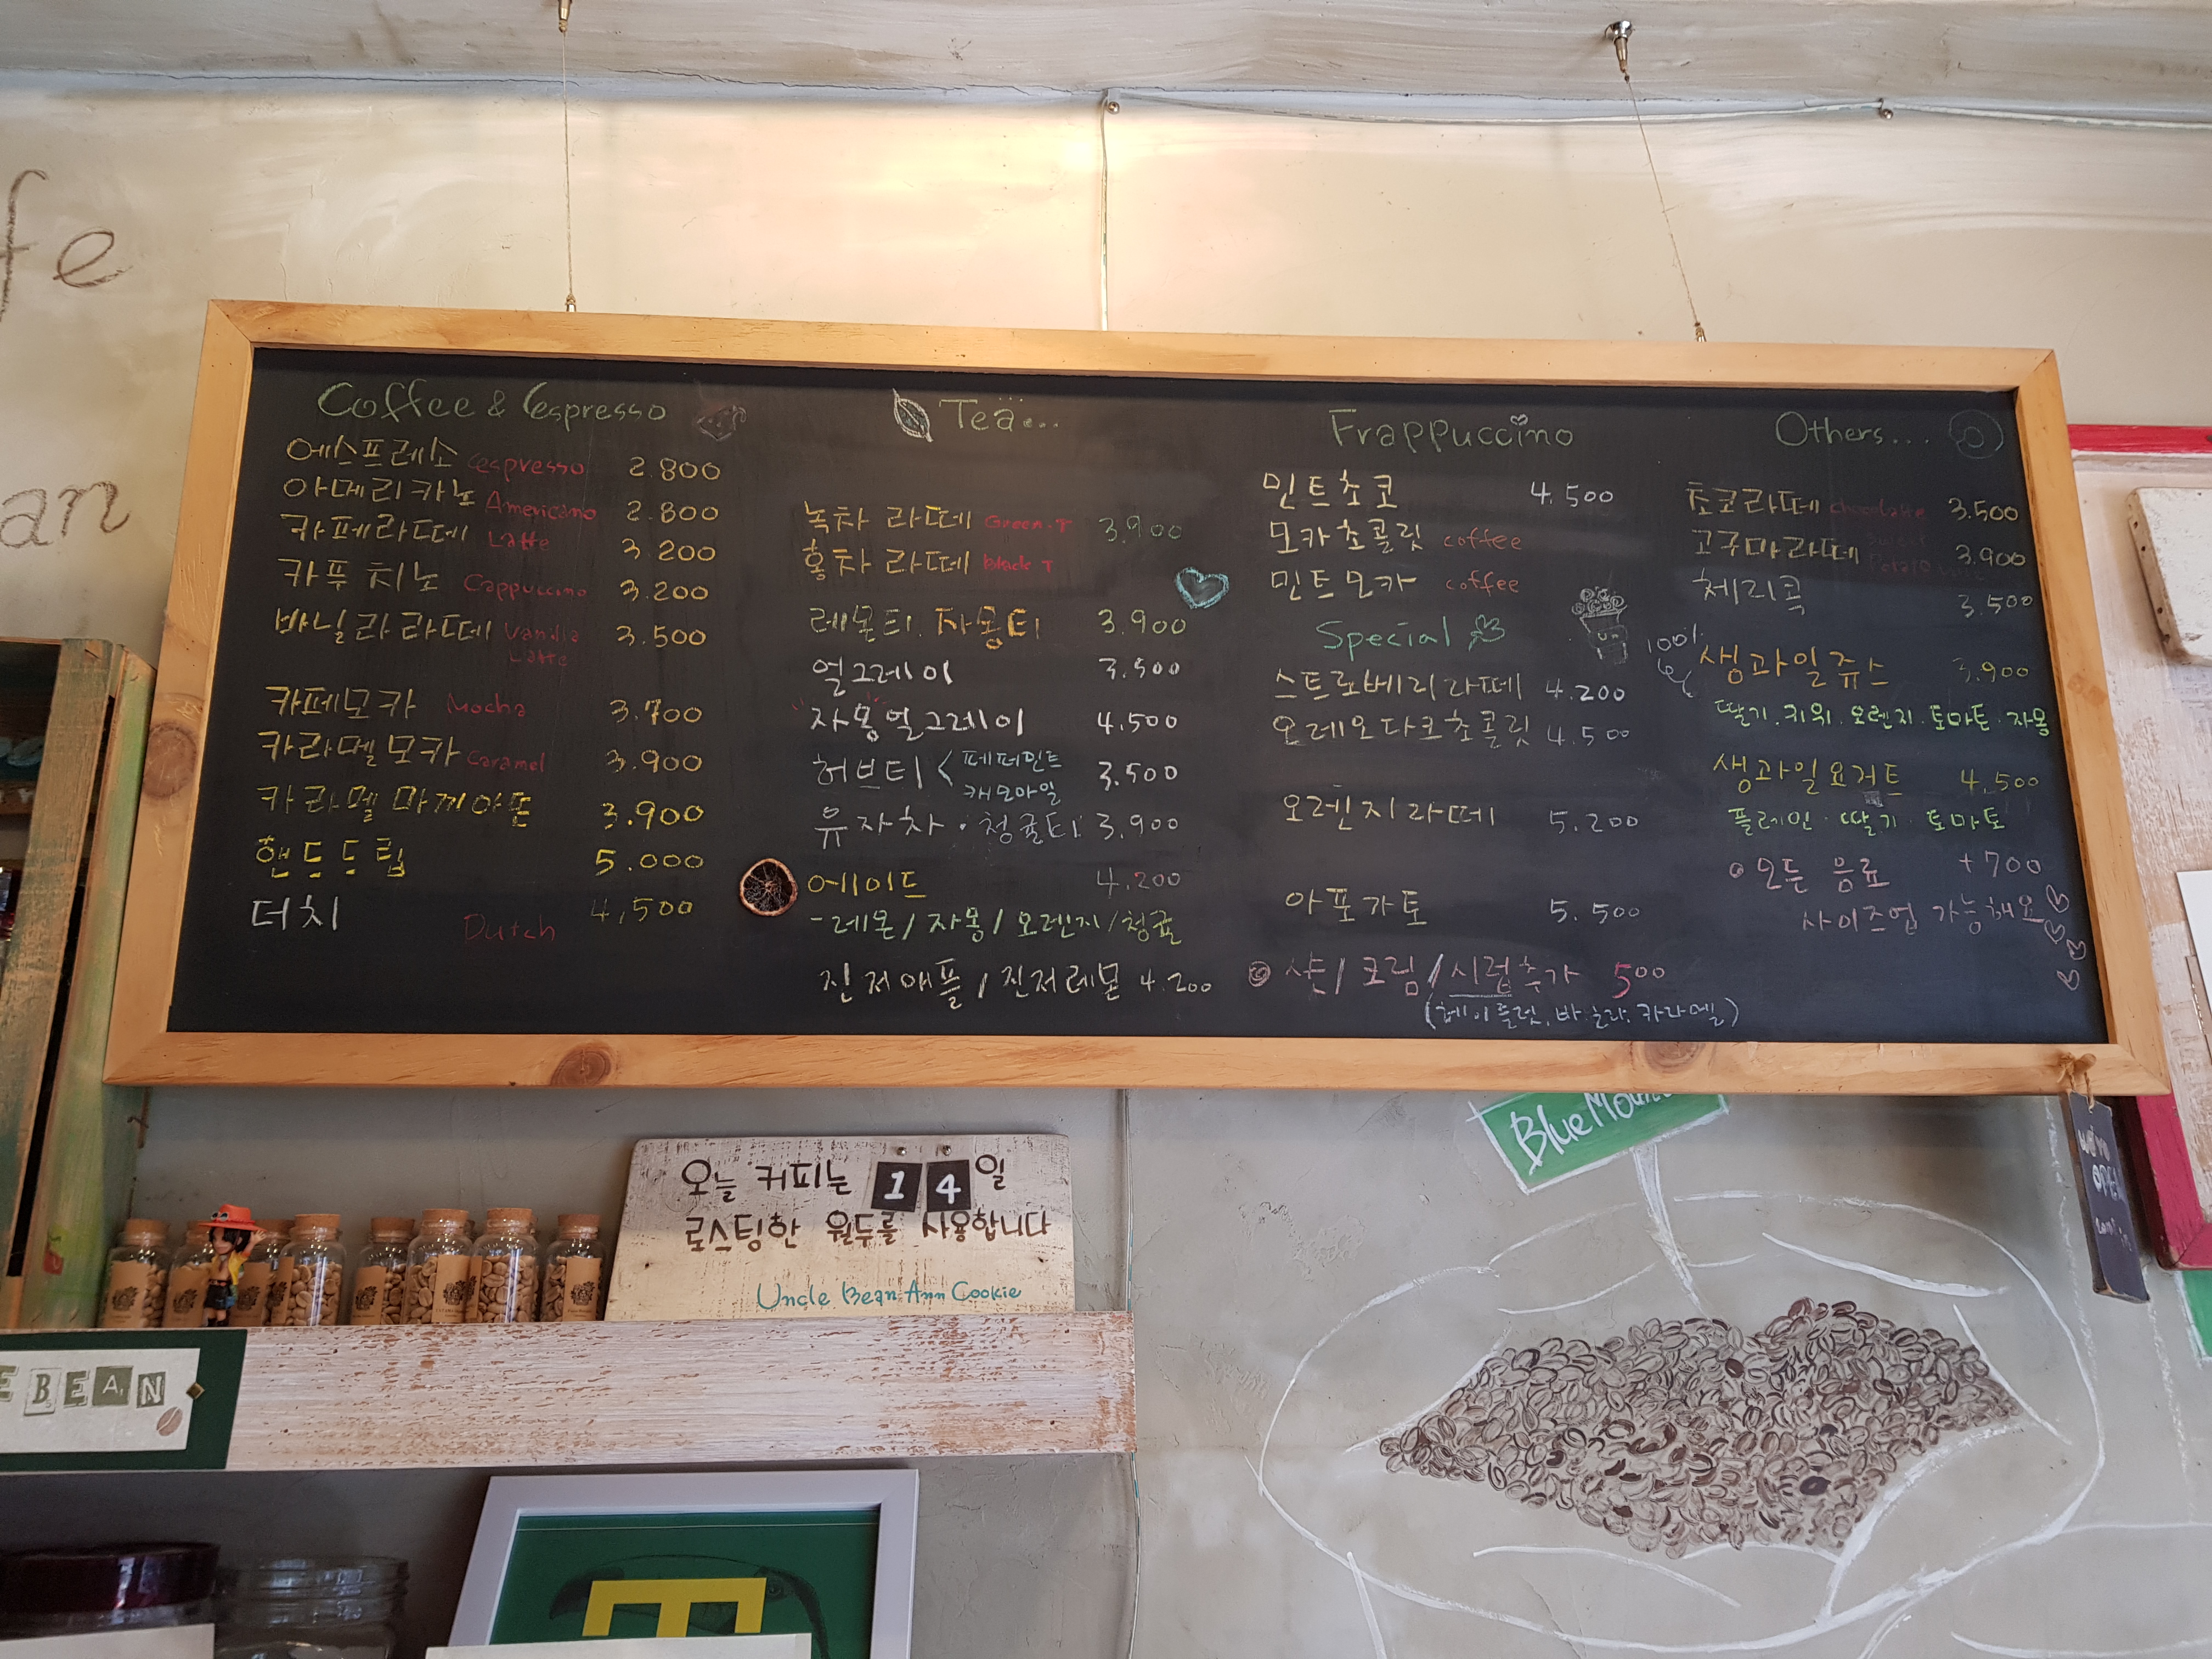 fe
an
Coffee & Espresso
에스프레소 espresso 2.800
아메리카노 Americano 2.800
카페라떼 Latte 3.200
카푸치노 Cappuccino 3.200
바닐라라떼 Vanilla Latte 3.500
카페모카 Mocha 3.700
카라멜모카 Caramel 3.900
카라멜마끼아또 3.900
핸드드립 5.000
더치 Dutch 4,500
Tea...
녹차라떼 Green.T 3.900
홍차라떼 black T
레몬티. 자몽티 3.900
얼그레이 3.500
자몽얼그레이 4,500
허브티 < 페퍼민트 캐모마일 3.500
유자차 · 청귤티 3.900
에이드 4.200
-레몬/자몽/오렌지/청귤
진저애플/진저레몬 4.200
Frappuccino
민트초코 4.500
모카초콜릿 coffee
민트모카 coffee
Special
스트로베리라떼 4.200
오레오다크초콜릿 4.500
오렌지라떼 5.200
아포가토 5.500
샷/크림/시럽추가 500
(헤이즐넛, 바닐라, 카라멜)
Others...
초코라떼 chocolatte 3.500
고구마라떼 Sweet Potato 3.900
체리콕 3.500
100% 생과일쥬스 3.900
딸기.키위.오렌지.토마토.자몽
생과일요거트 4,500
플레인·딸기·토마토
모든 음료 +700
사이즈업 가능해요
오늘 커피는 14일
로스팅한 원두를 사용합니다
Uncle Bean Ann Cookie
E BEAN
BlueMoun
OPEN
T